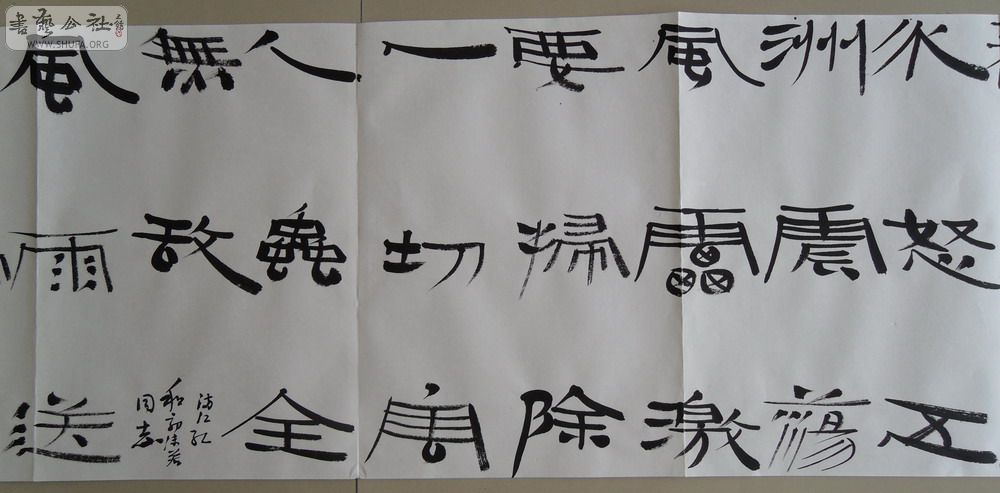 水怒五
洲震蕩
風雷激
要掃除
一切害
人蟲全
無敌
满江红
和郭沫若
同志
風雨送
書藝公社
WWW.SHUFA.ORG